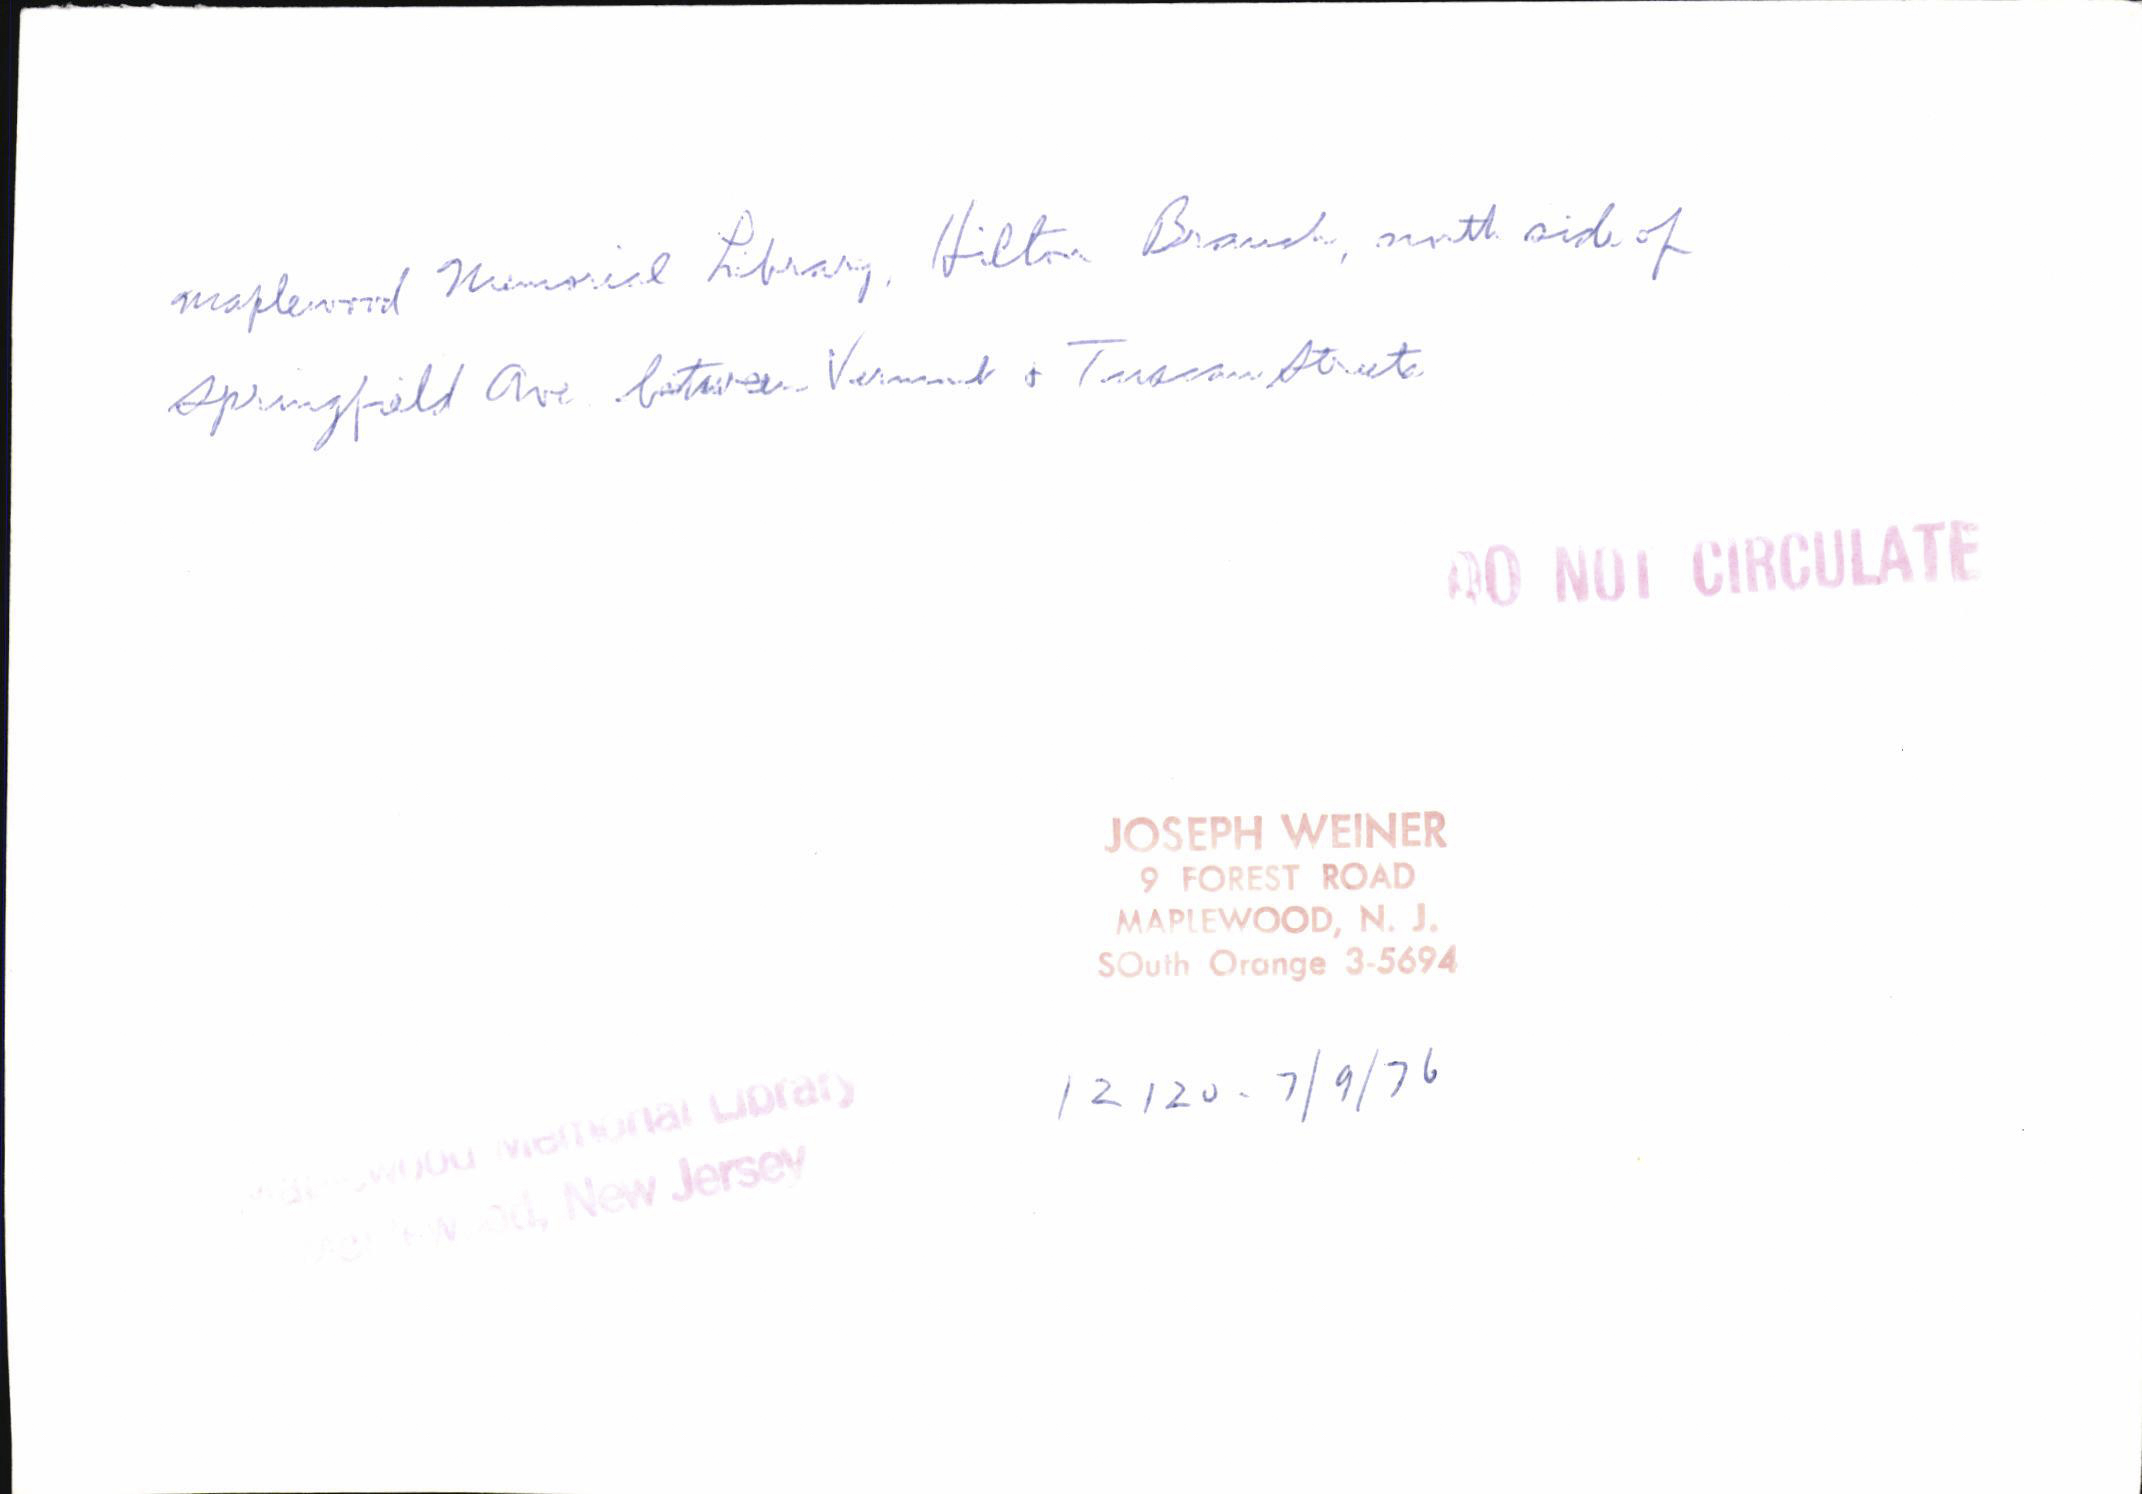 Maplewood Memorial Library, Hilton Branch, north side of
Springfield Ave between Vermont & Tuscan Streets
DO NOT CIRCULATE
JOSEPH WEINER
9 FOREST ROAD
MAPLEWOOD, N. J.
SOuth Orange 3-5694
12120 - 7/9/76
Maplewood Memorial Library
Maplewood, New Jersey